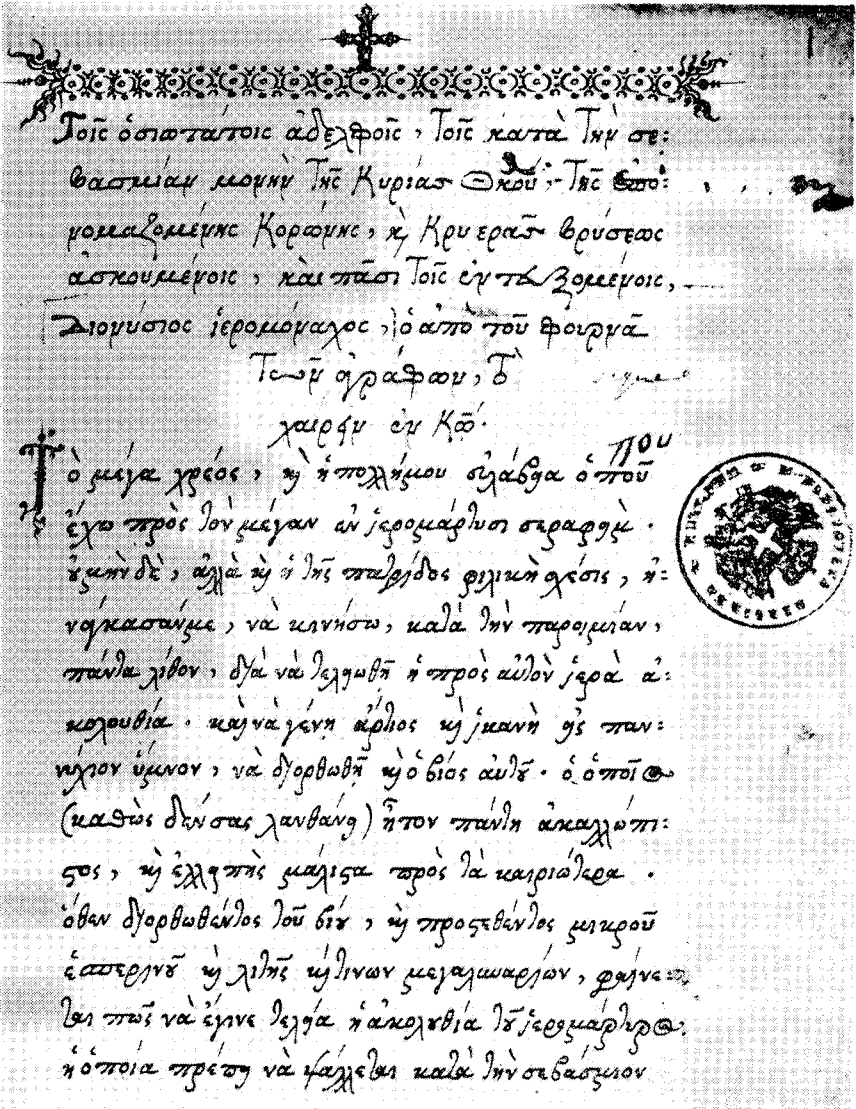 Τοῖς ὁσιωτάτοις ἀδελφοῖς, Τοῖς κατὰ Τὴν σε:
βασμίαν μονὴν Τῆς Κυρίας Θκου· Τῆς ἐπο:
νομαζομένης Κορώνης, κ̀ Κρυερᾶς βρύσεως
ἀσκουμένοις, καὶ πᾶσι Τοῖς ἐντευξομένοις,
Διονύσιος ἱερομόναχος, ὁ ἀπὸ τοῦ φουρνᾶ
Τῶν ἀγράφων,
χαίρειν ἐν Κῳ̄.
που
Τὸ μέγα χρέος, κ̀ ἡ πολλήμου εὐλάβεια ὁποῦ
ἔχω πρὸς τὸν μέγαν ἐν ἱερομάρτυσι σεραφεὶμ.
οὐμὴν δὲ, ἀλλὰ κ̀ ἡ τῆς πατρίδος φιλικὴ σχέσις, ἠ:
νάγκασάνμε, νὰ κινήσω, κατὰ τὴν παροιμίαν,
πάντα λίθον, διὰ νὰ τελειωθῆ ἡ πρὸς αὐτὸν ἱερὰ ἀ:
κολουθία. καὶ νὰ γένη ἄρτιος κ̀ ἱκανὴ εἰς παν:
νύχιον ὕμνον, νὰ διορθωθῆ κ̀ ὁ βίος αὐτοῦ. ὁ ὁποῖος
(καθὼς δὲν σας λανθάνει) ἦτον πάντη ἀκαλλώπι:
στος, κ̀ ἐλλειπὴς μάλιστα πρὸς τὰ καιριώτερα.
ὅθεν διορθωθέντος τοῦ βίου, κ̀ προστεθέντος μικροῦ
ἑσπερινοῦ κ̀ λιτῆς κ̀ τινων μεγαλυναρίων, φαίνε:
ται πῶς νὰ ἔγινε τελεία ἡ ἀκολουθία τοῦ ἱερομάρτυρος.
ἡ ὁποία πρέπει νὰ ψάλλεται κατὰ τὴν σεβάσμιον